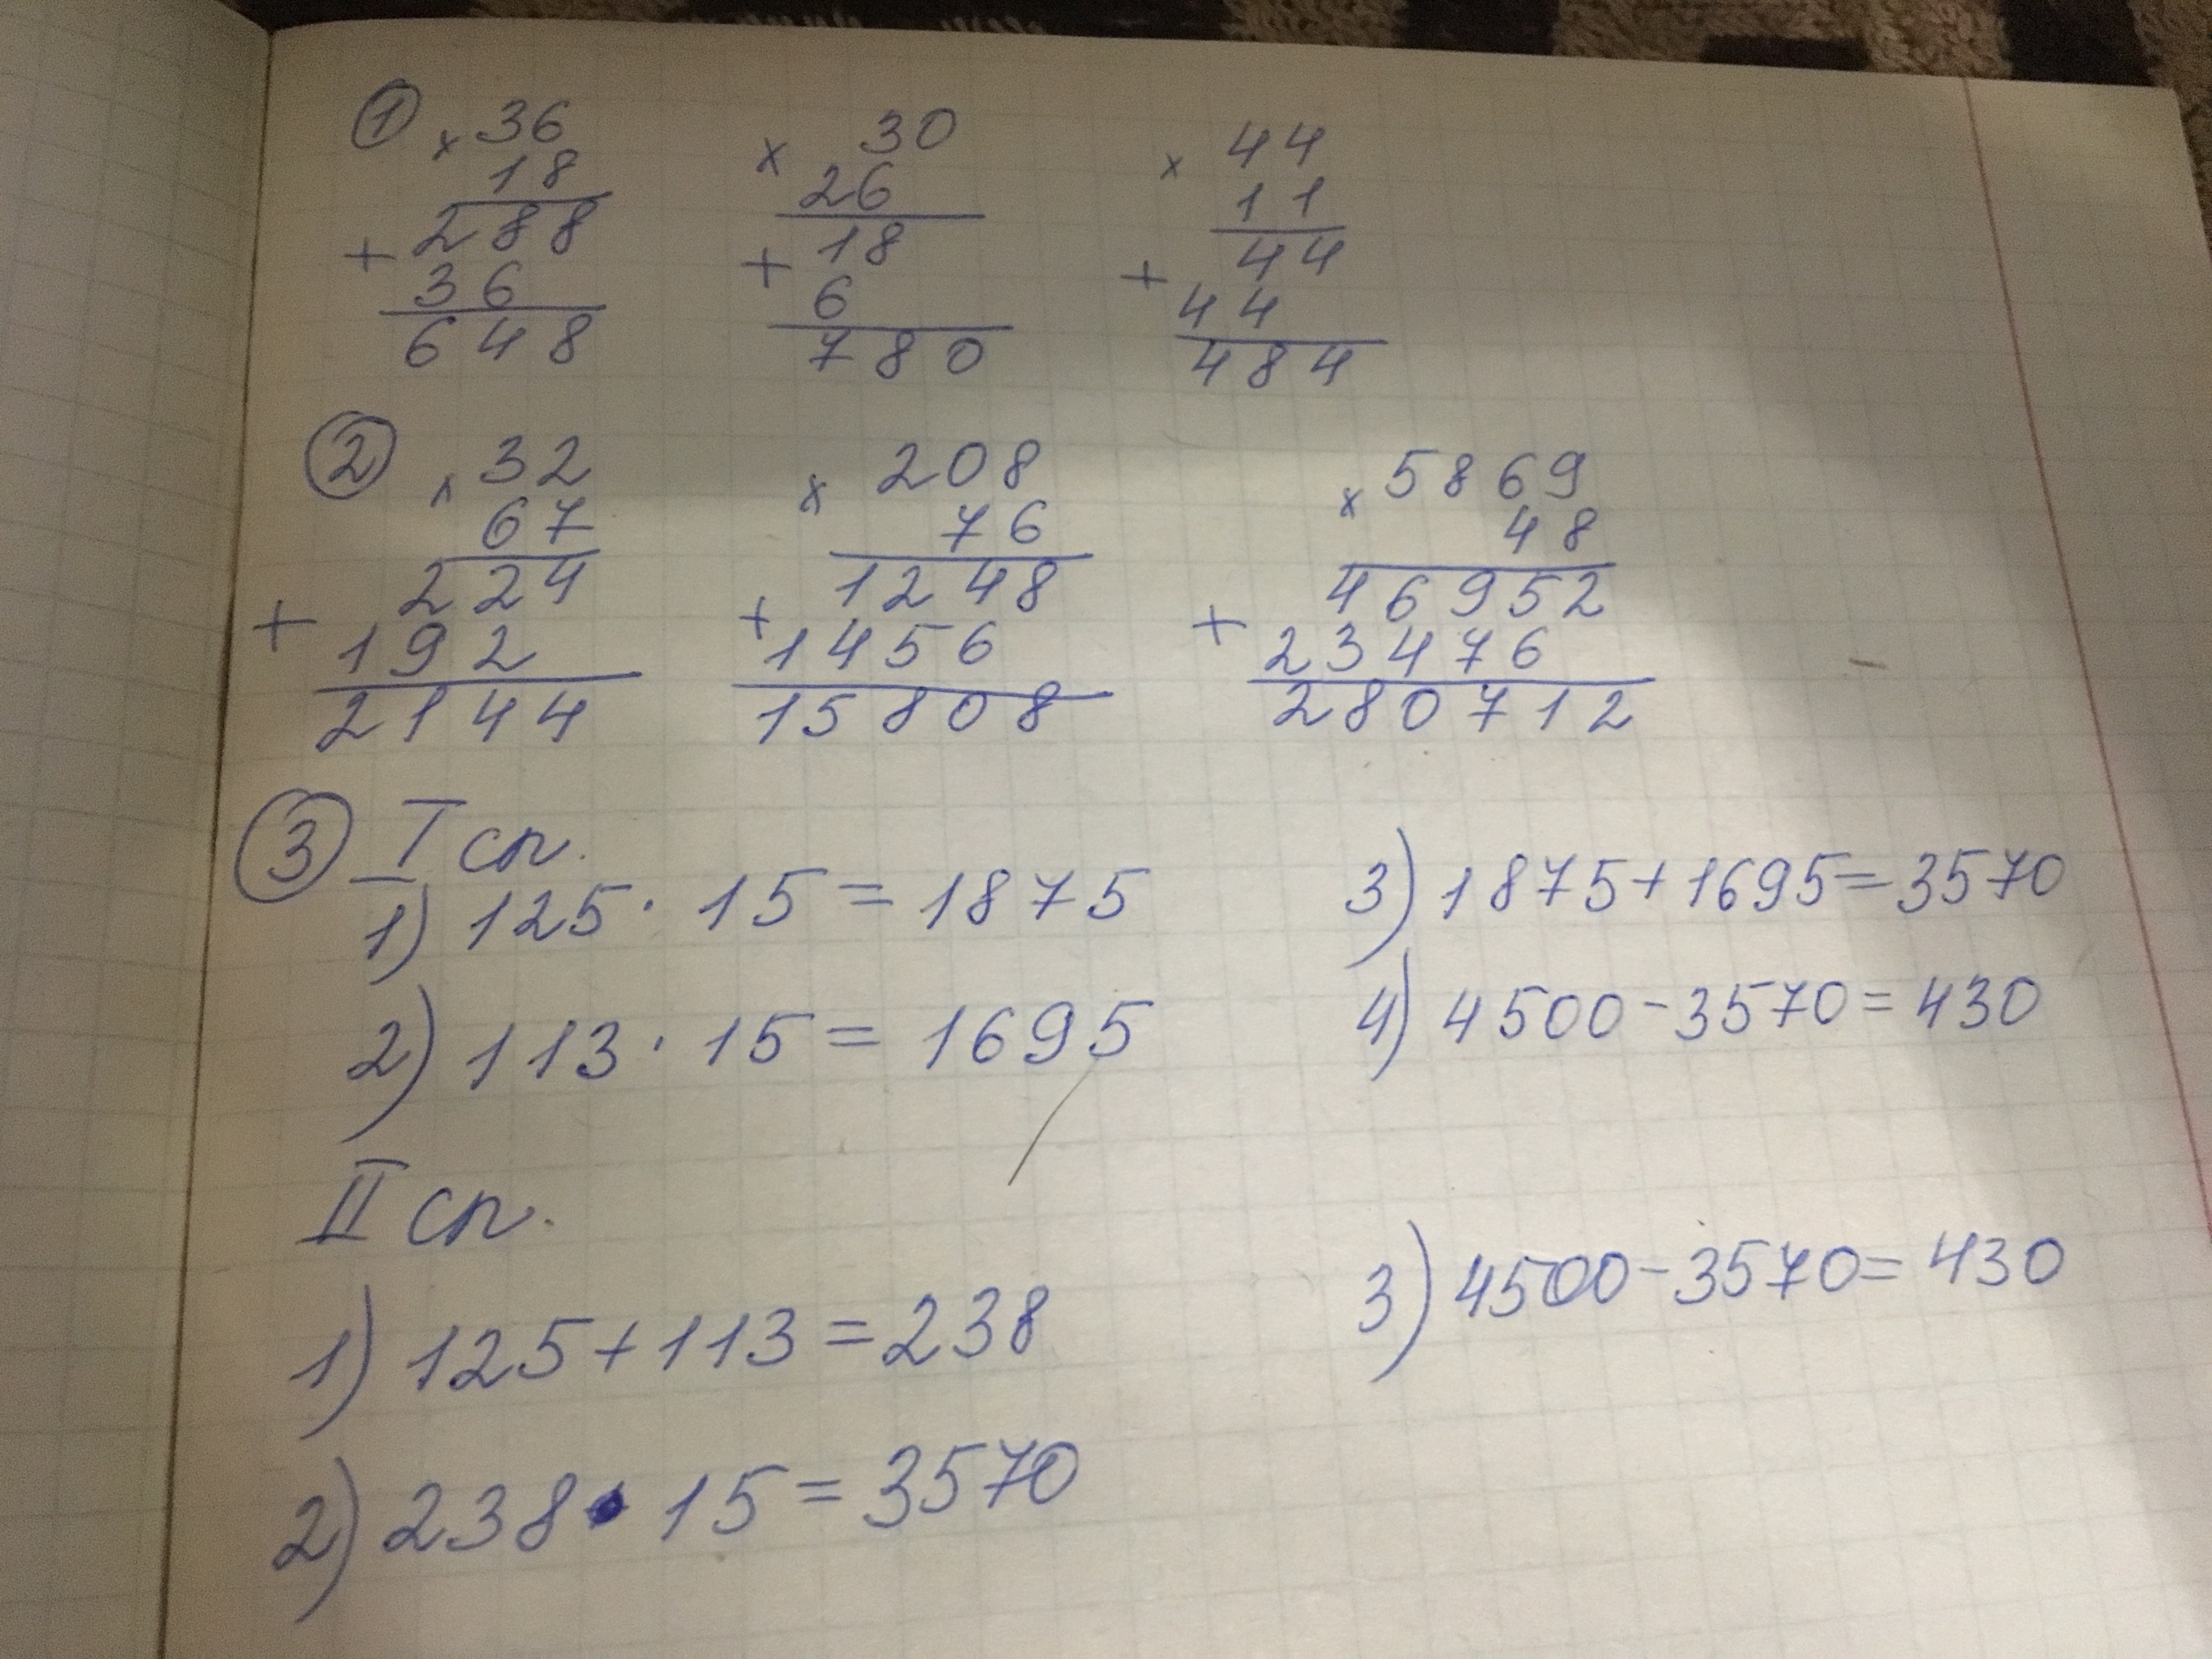 ① × 36   × 30   × 44
18   26   11
+ 288   + 18   + 44
36   6   44
648   780   484
② × 32   × 208   × 5869
67   76   48
+ 224   + 1248   + 46952
192   1456   23476
2144   15808   280712
③ I сп.
1) 125 · 15 = 1875   3) 1875+1695=3570
2) 113 · 15 = 1695   4) 4500-3570=430
II сп.
1) 125+113=238   3) 4500-3570=430
2) 238 · 15=3570